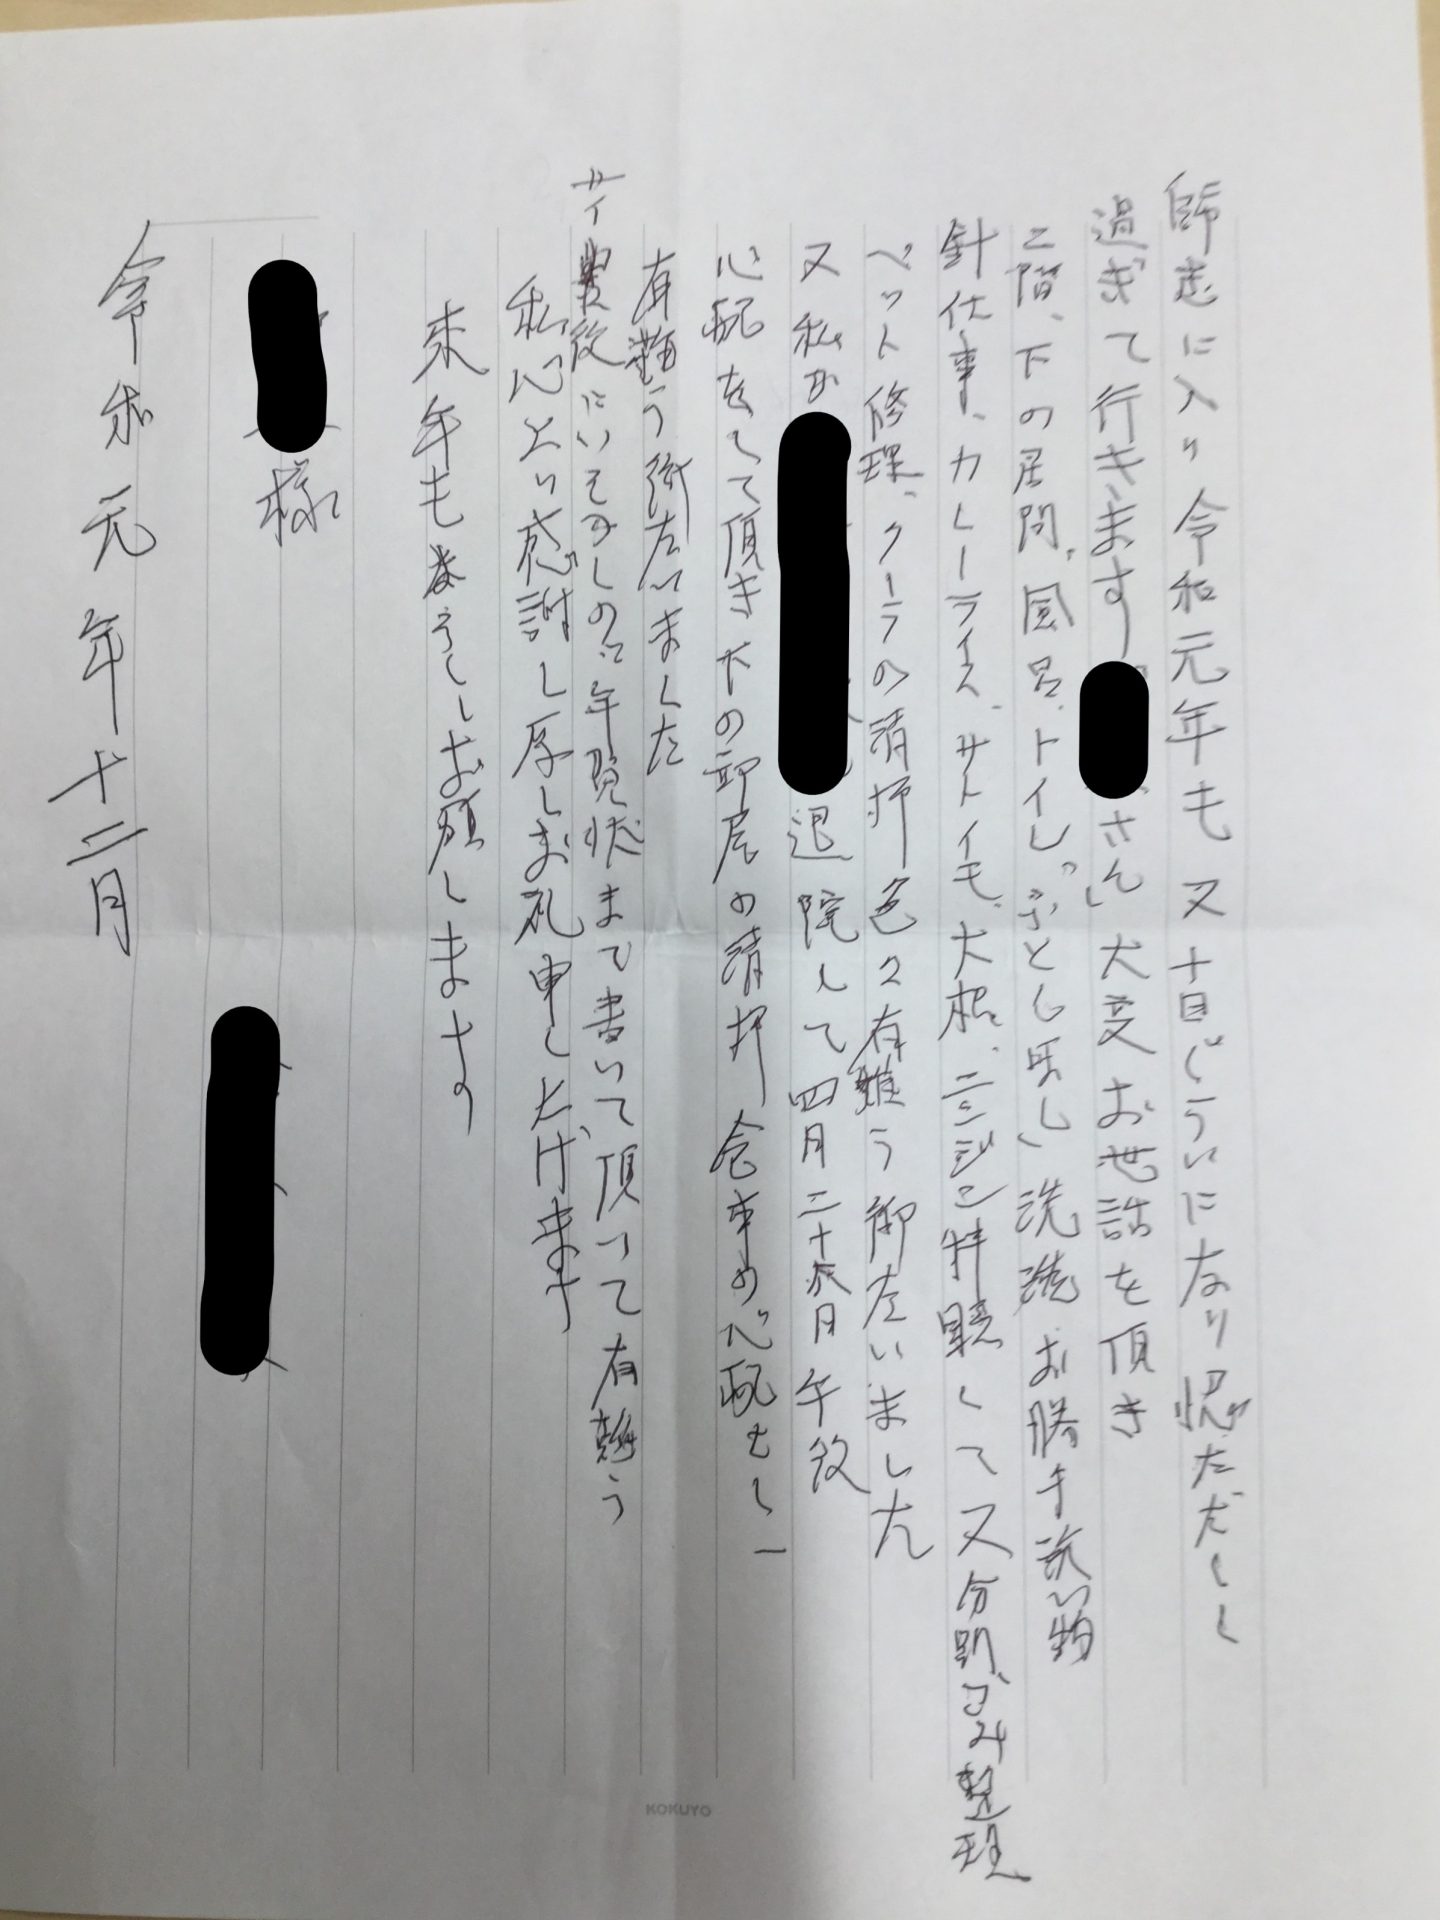 師走に入り令和元年も又十日ぐらいになり
過ぎて行きます「さん」大変お世話を頂き
二階、下の居間、風呂、トイレ、ふとん干し」洗濯お勝手洗い物
針仕事、カレーライス、サトイモ、大根、ニンジン料理して又分別ゴミ整理
ベット修理、クーラの清掃色々有難う御座いました
又私が退院して四月二十日午後
心配をして頂き下の部屋の清掃食事の心配をし
有難う御座いました
年賀状まで書いて頂いて有難う
私心より感謝し厚くお礼申し上げます
来年もよろしくお願します
様
令和元年十二月
KOKUYO